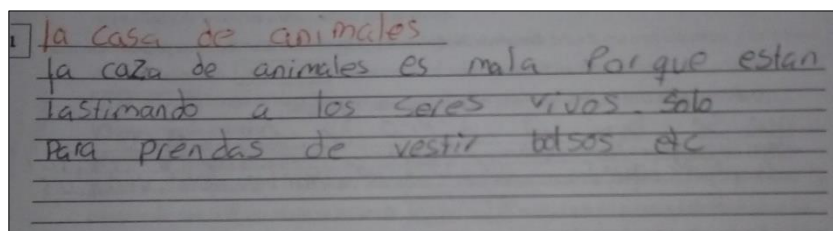 1 la casa de animales
la caza de animales es mala Por que estan
lastimando a los seres vivos. Solo
para prendas de vestir bolsos etc